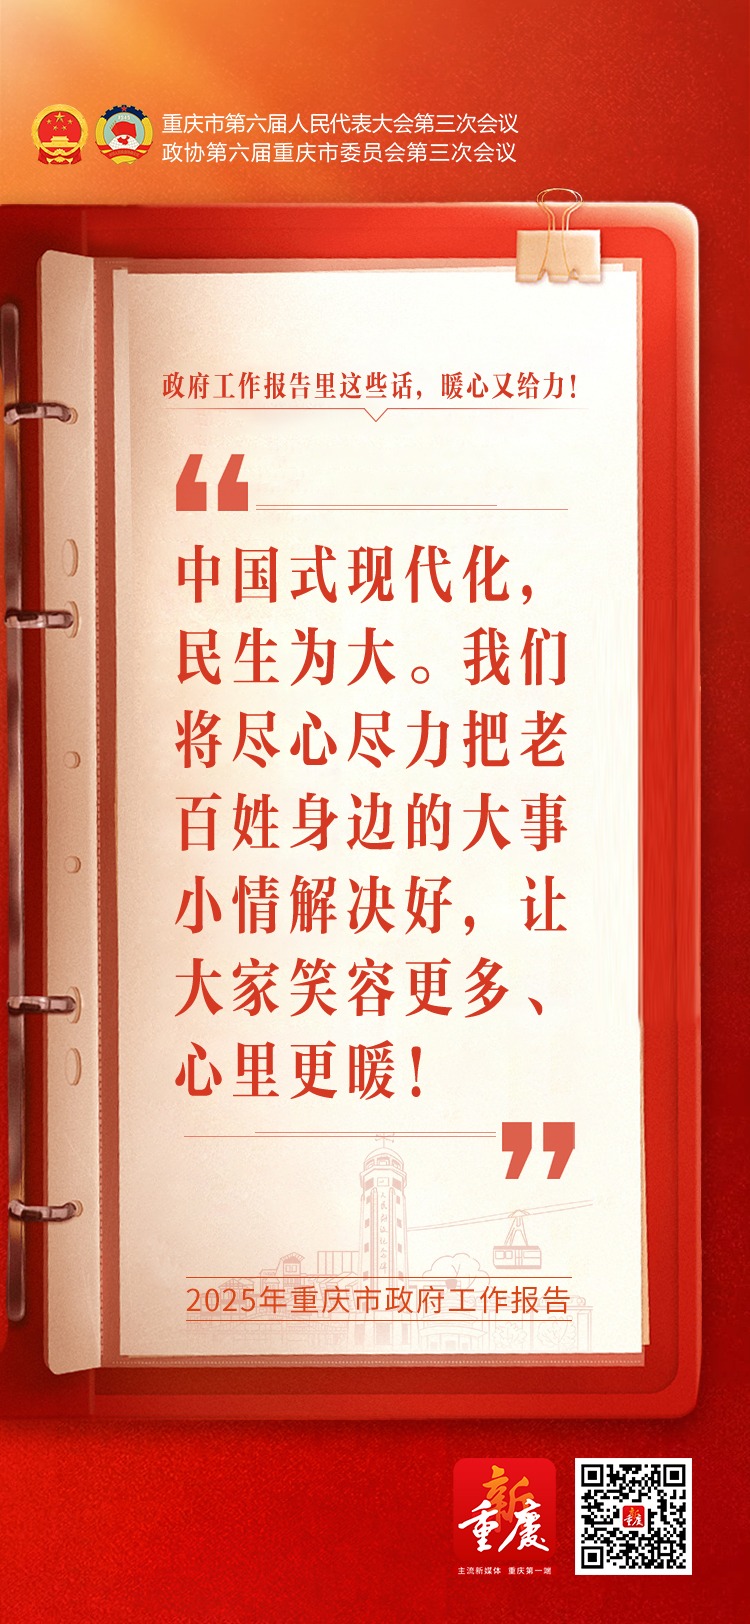 重庆市第六届人民代表大会第三次会议
政协第六届重庆市委员会第三次会议
政府工作报告里这些话，暖心又给力！
“
中国式现代化，
民生为大。我们
将尽心尽力把老
百姓身边的大事
小情解决好，让
大家笑容更多、
心里更暖！
”
人民解放纪念碑
2025年重庆市政府工作报告
新重庆
主流新媒体 重庆第一端
新重庆